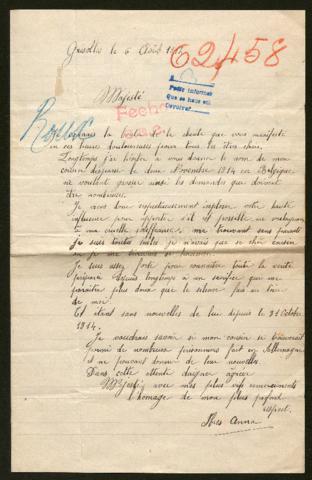 Grisolles le 6 Août 191
62458
A
Pedir informes
Que se haga en
Devolver
Majesté
Fecho
Rouse
la bonté & la charité que vous manifestez
en ces heures douloureuses pour tous les êtres chers,
Longtemps j'ai hésiter à vous donner le nom de mon
cousin disparu le douze Novembre 1914 en Belgique
ne voulant grossir ainsi les demandes que doivent
être nombreuses.
Je viens donc respectueusement implorer votre haute
influence pour apporter s'il est possible un soulagement
à ma cruelle souffrance, me trouvant sans parents
Je suis toute seule je n'avais que ce cher cousin
Je suis assez forte pour connaître toute la vérité
préparée depuis longtemps à un sacrifice qui me
paraîtra plus doux que le silence fait au tour
de moi.
Et étant sans nouvelles de lui depuis le 31 Octobre
1914.
Je voudrais savoir si mon cousin se trouverait
parmi de nombreux prisonniers fait en Allemagne
et ne pouvant donner de leur nouvelles.
Dans cette attente daignez agréer
Majesté avec mes plus vifs remerciements
l'hommage de mon plus profond
respect.
Anna